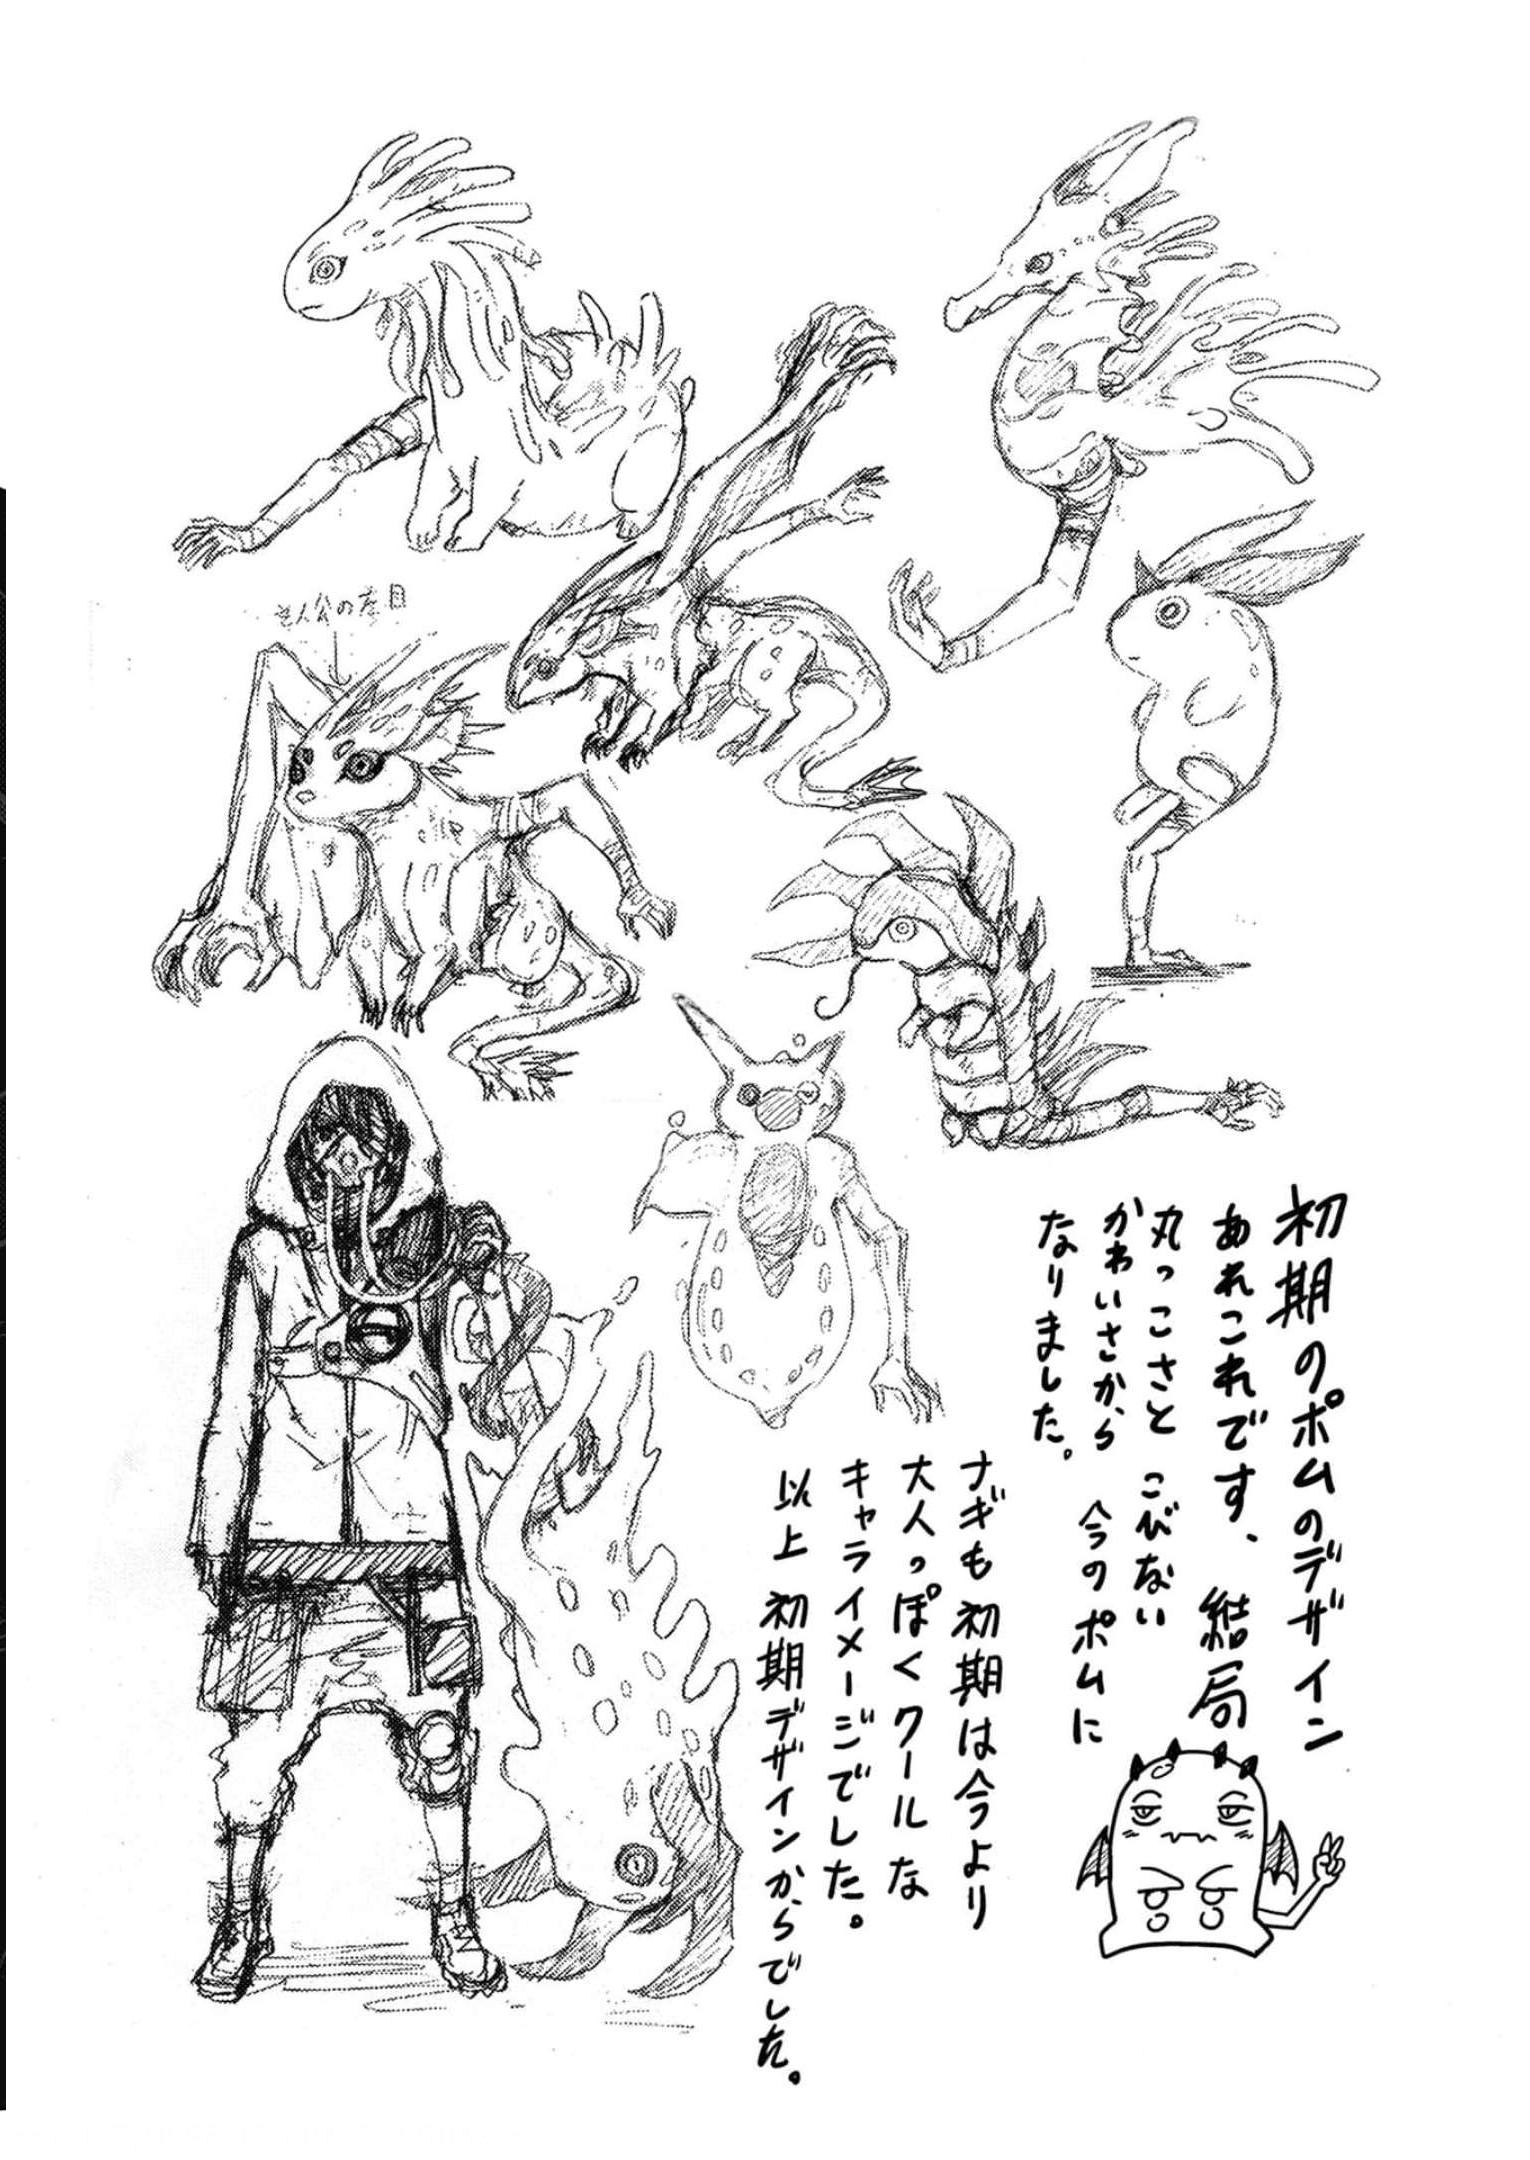 初期のポムのデザイン
あれこれです、結局
丸っこさと こびない
かわいさから 今のポムに
なりました。
ナギも初期は今より
大人っぽくクールな
キャライメージでした。
以上 初期デザインからでした。
主人公の左目